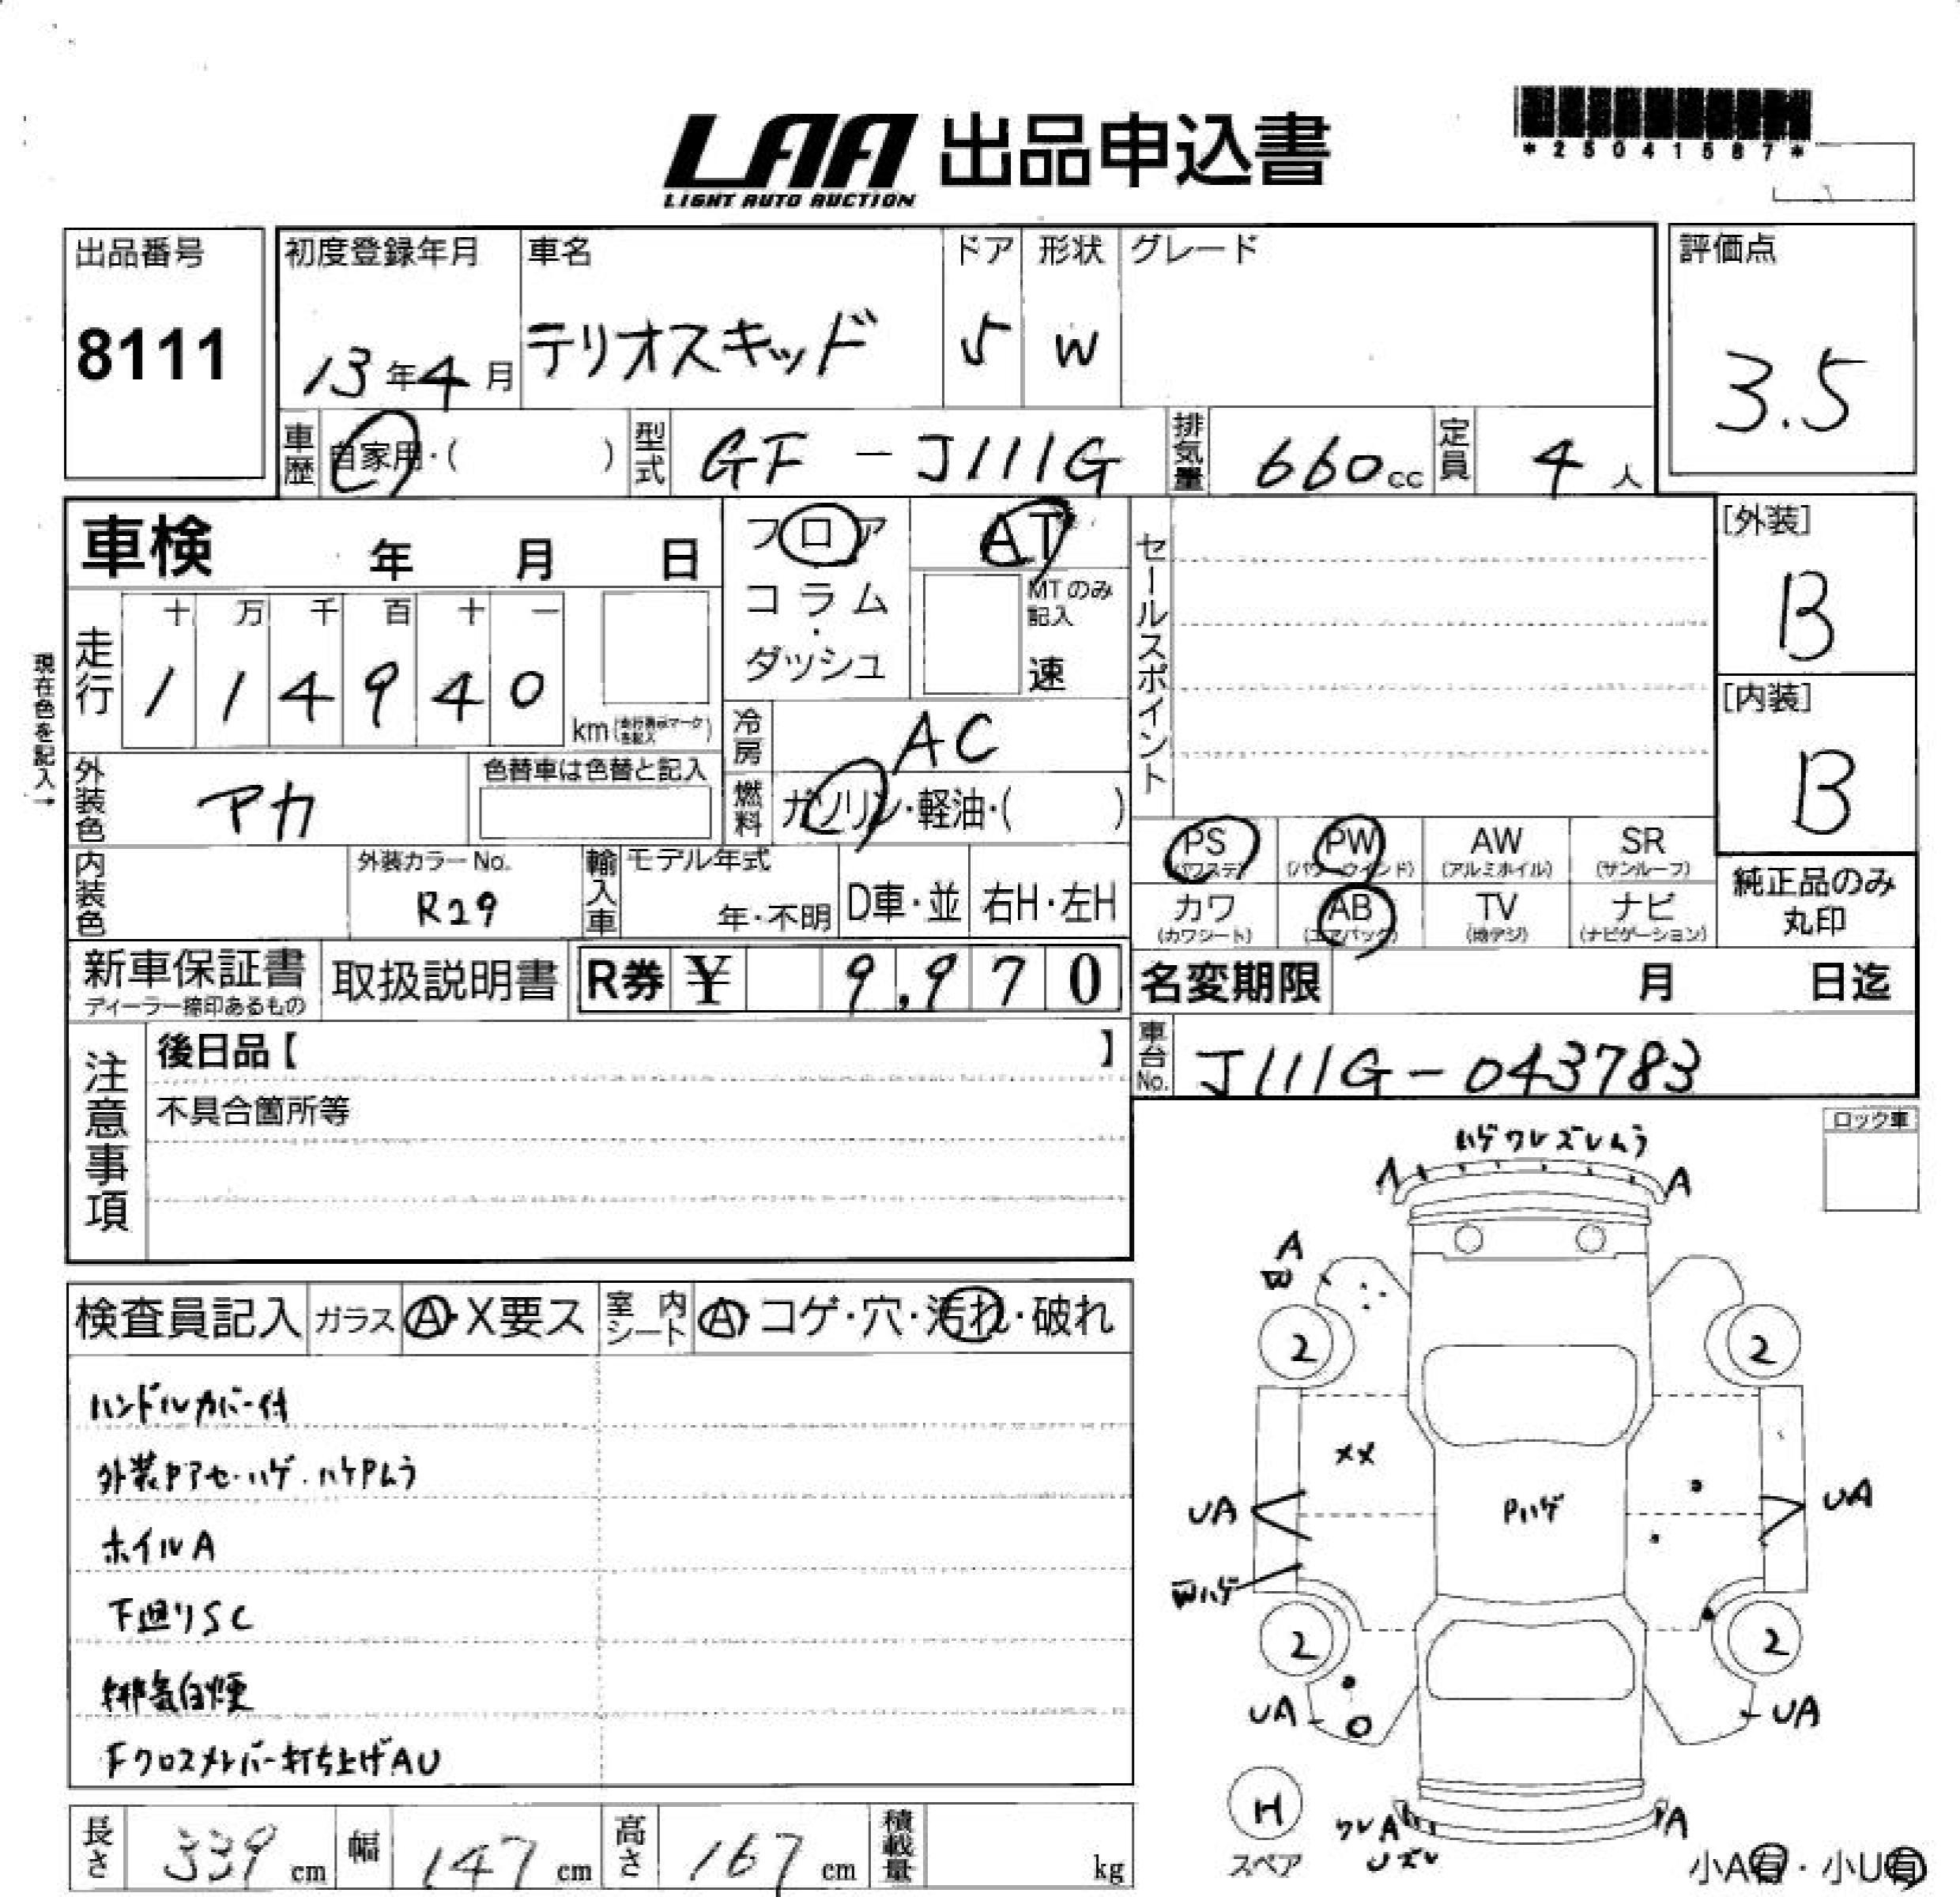 LAA 出品申込書
LIGHT AUTO AUCTION
*25041587*
出品番号 初度登録年月 車名 ドア 形状 グレード 評価点
8111 13年4月 テリオスキッド 5 W 3.5
車歴 自家用・( ) 型式 GF-J111G 排気量 660cc 定員 4人
車検 年 月 日 フロア AT セールスポイント [外装]
コラム・ダッシュ MTのみ記入 速 B
現在色を記入→
走行 十 万 千 百 十 一
1 1 4 9 4 0 km
[内装]
B
冷房 AC
外装色 アカ 色替車は色替と記入 燃料 ガソリン・軽油・( )
PS (パワステ) PW (パワーウインド) AW (アルミホイル) SR (サンルーフ)
カワ (カワシート) AB (エアバック) TV (地デジ) ナビ (ナビゲーション)
純正品のみ丸印
内装色 外装カラーNo. R29 輸入車 モデル年式 年・不明 D車・並 右H・左H
新車保証書 ディーラー捺印あるもの 取扱説明書 R券 ¥ 9,970 名変期限 月 日迄
注意事項 後日品【 】 車台No. J111G-043783
不具合箇所等
ロック車
ハゲワレズレムラ
A A
A
W
2 2
××
UA PハゲUA
Wハゲ
2 2
UA UA
検査員記入 ガラス A・X要ス 室内シート A・コゲ・穴・汚れ・破れ
ハンドルカバー付
外装Pアセ・ハゲ・ハケPムラ
ホイルA
下廻りSC
排気白煙
Fクロスメンバー打ち上げAU
H
スペア
ワレA A
Uズレ
小A有・小U有
長さ 339cm 幅 147cm 高さ 167cm 積載量 kg